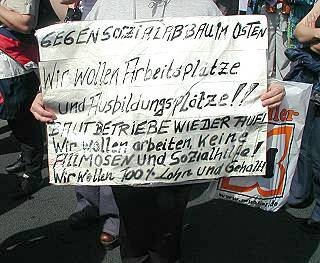 GEGEN SOZIALABBAU IM OSTEN
Wir wollen Arbeitsplätze
und Ausbildungsplätze!!
BAUT BETRIEBE WIEDER AUF!
Wir wollen arbeiten, keine
ALLMOSEN und Sozialhilfe!
Wir wollen 100% Lohn und Gehalt!